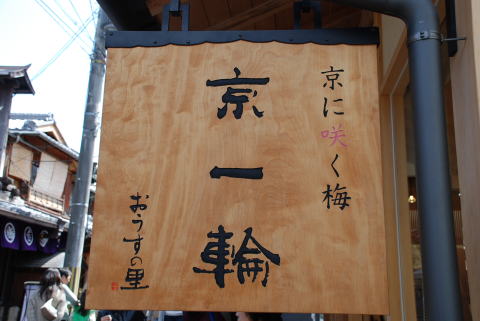 京に咲く梅
京一輪
おうすの里